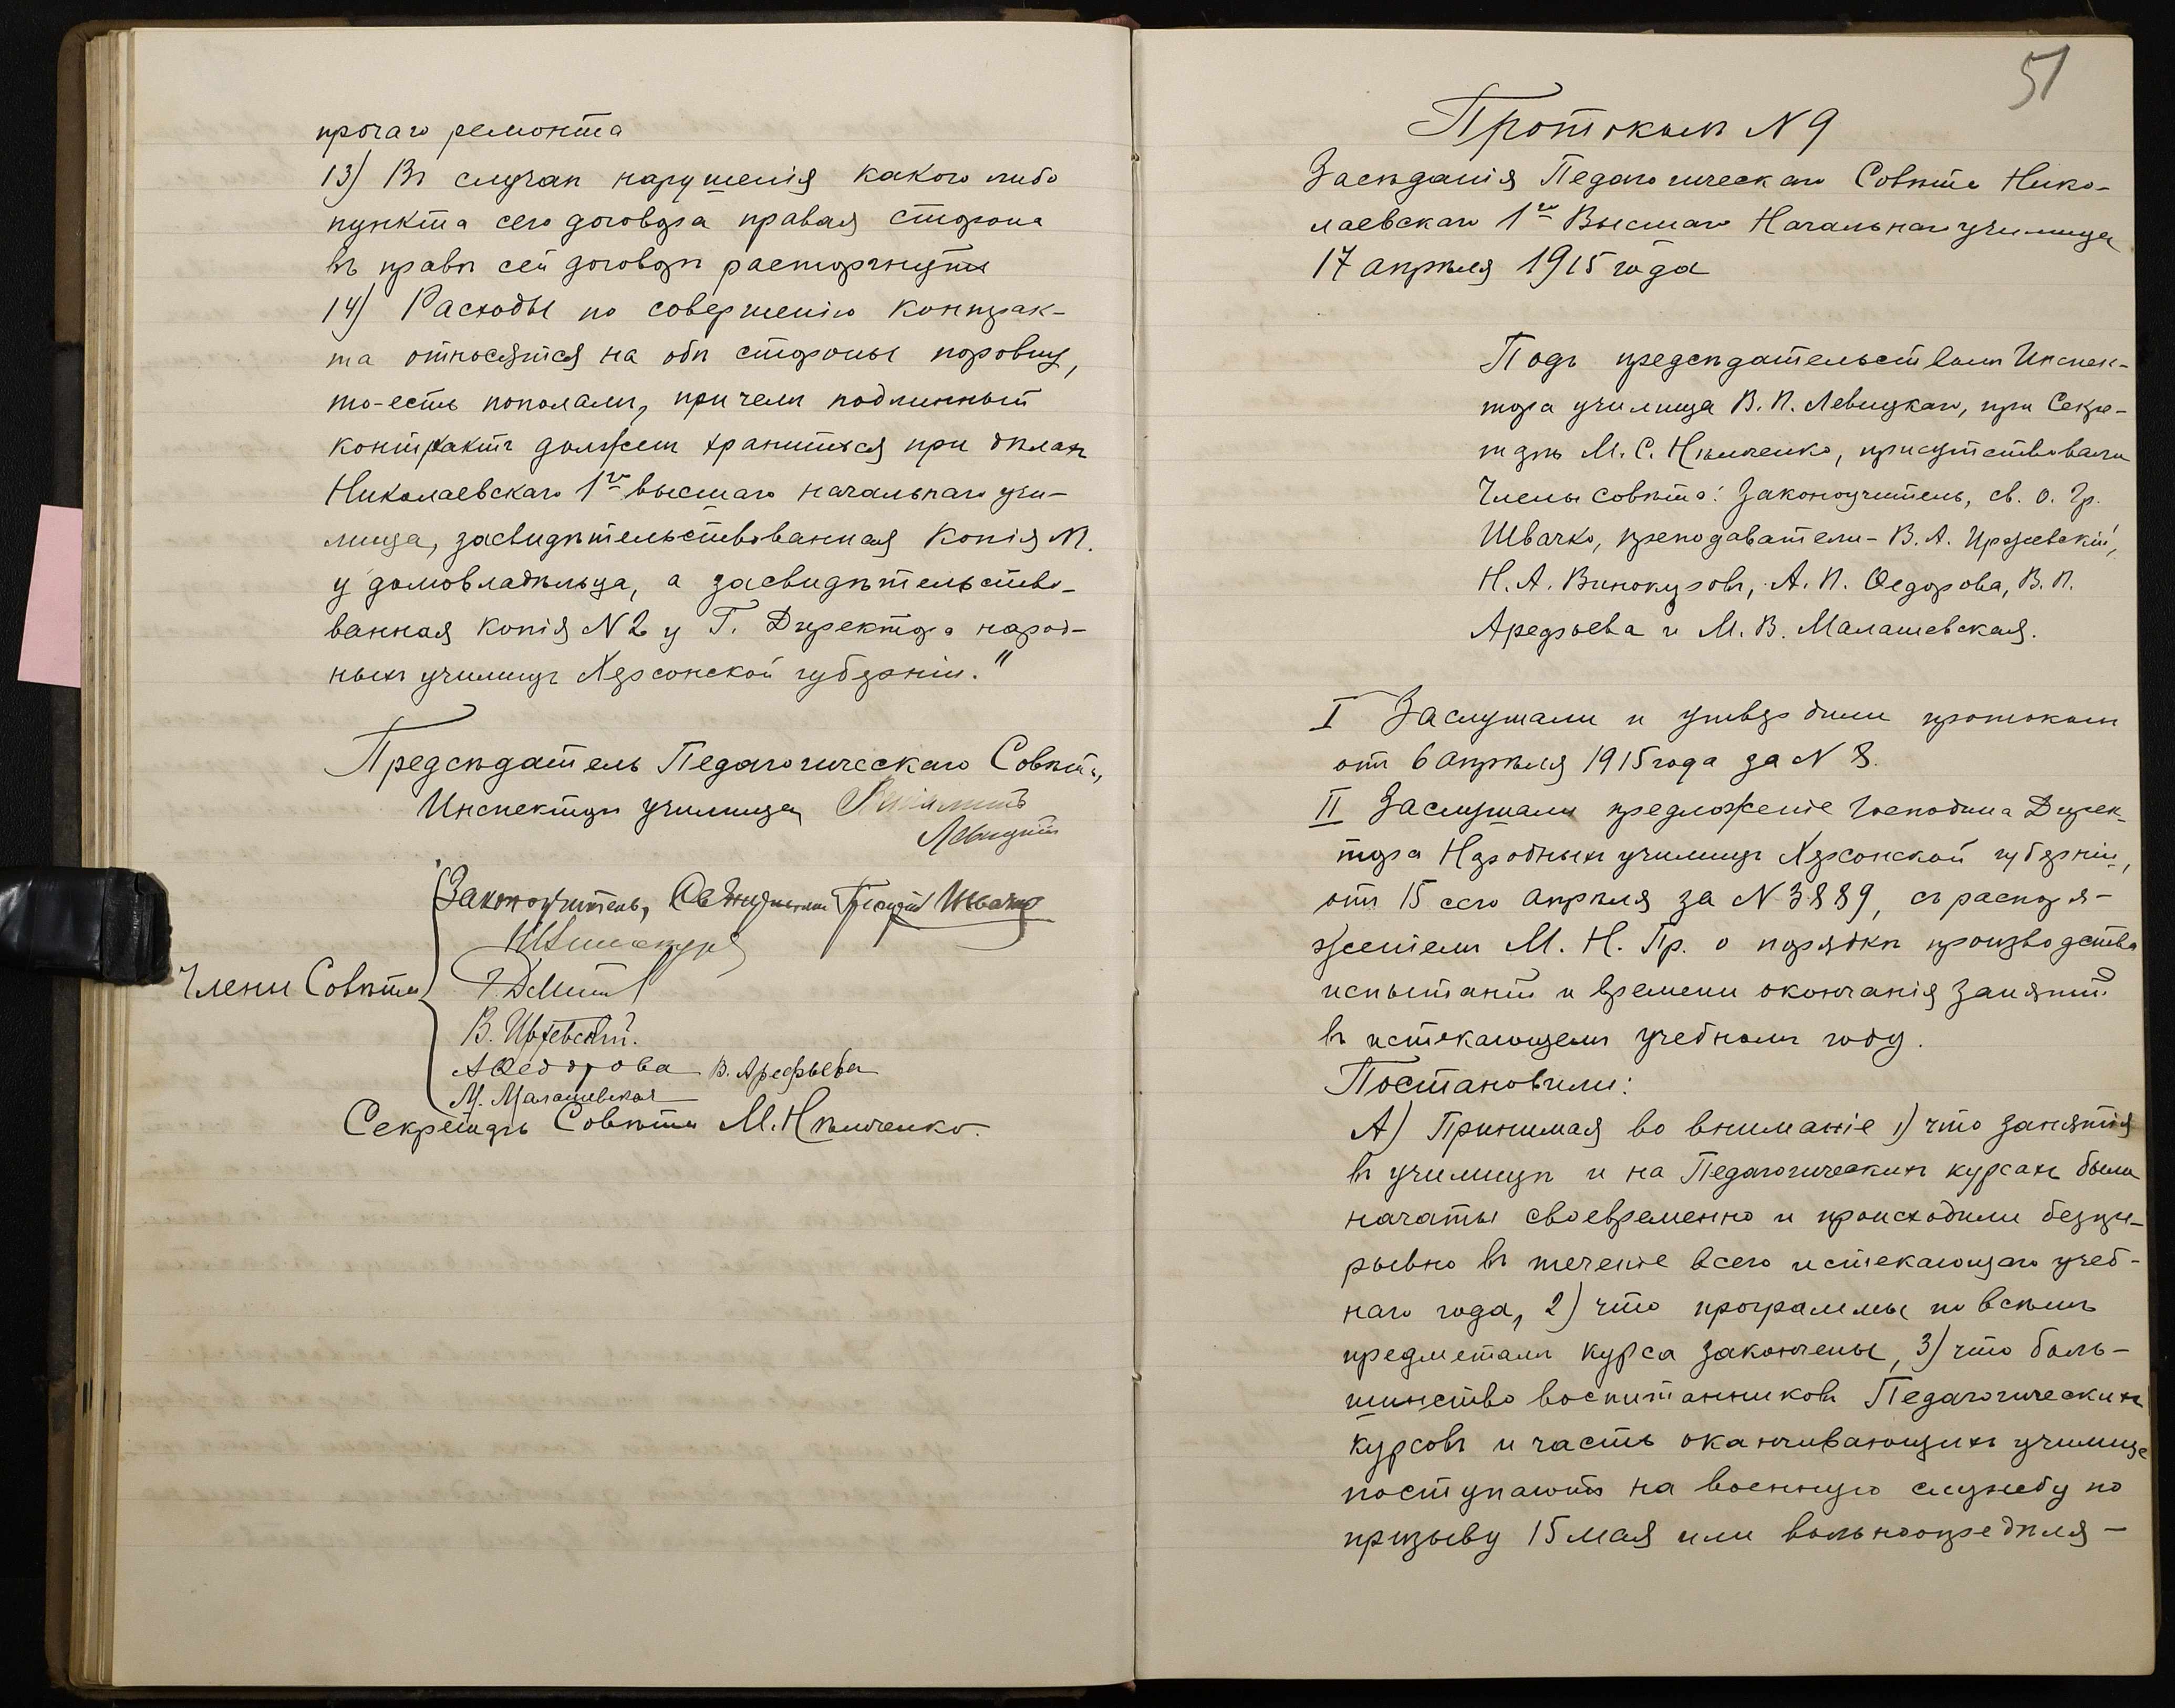 прочаго ремонта
13) Въ случаѣ нарушенія какого либо
пункта сего договора правая сторона
въ правѣ сей договоръ расторгнуть
14) Расходы по совершенію контрак-
та относятся на обѣ стороны поровну,
то-есть пополамъ, при чемъ подлинный
контрактъ долженъ храниться при дѣлахъ
Николаевскаго 1го высшаго начальнаго учи-
лища, засвидѣтельствованная копія №1.
у домовладѣльца, а засвидѣтельство-
ванная копія №2 у Г. Директора народ-
ныхъ училищъ Херсонской губерніи."
Предсѣдатель Педагогическаго Совѣта,
Инспекторъ училища
Левицкій
Законоучитель, Священникъ Григорій Швачко
Члены Совѣта
В. Иржевскій.
А Ѳедорова В. Арефьева
М. Малашевская
Секретарь Совѣта М. Нѣмченко.
51
Протоколъ №9
Засѣданія Педагогическаго Совѣта Нико-
лаевскаго 1го Высшаго Начальнаго училища
17 апрѣля 1915 года
Подъ предсѣдательствомъ Инспек-
тора училища В. П. Левицкаго, при Секре-
тарѣ М. С. Нѣмченко, присутствовали
Члены совѣта: Законоучитель, св. о. Гр.
Швачко, преподаватели - В. А. Иржевскій,
Н. А. Винокуровъ, А. П. Ѳедорова, В. П.
Арефьева и М. В. Малашевская.
I Заслушали и утвердили протоколъ
отъ 6 апрѣля 1915 года за № 8.
II Заслушали предложеніе Господина Дирек-
тора Народныхъ училищъ Херсонской губерніи,
отъ 15 сего апрѣля за № 3889, съ распоря-
женіемъ М. Н. Пр. о порядкѣ производства
испытаній и времени окончанія занятій
въ истекающемъ учебномъ году.
Постановили:
А) Принимая во вниманіе 1) что занятія
въ училищѣ и на Педагогическихъ курсахъ были
начаты своевременно и происходили безпре-
рывно въ теченіе всего истекающаго учеб-
наго года, 2) что программы по всѣмъ
предметамъ курса закончены, 3) что боль-
шинство воспитанниковъ Педагогическихъ
курсовъ и часть оканчивающихъ училище
поступаютъ на военную службу по
призыву 15 мая или вольноопредѣля-